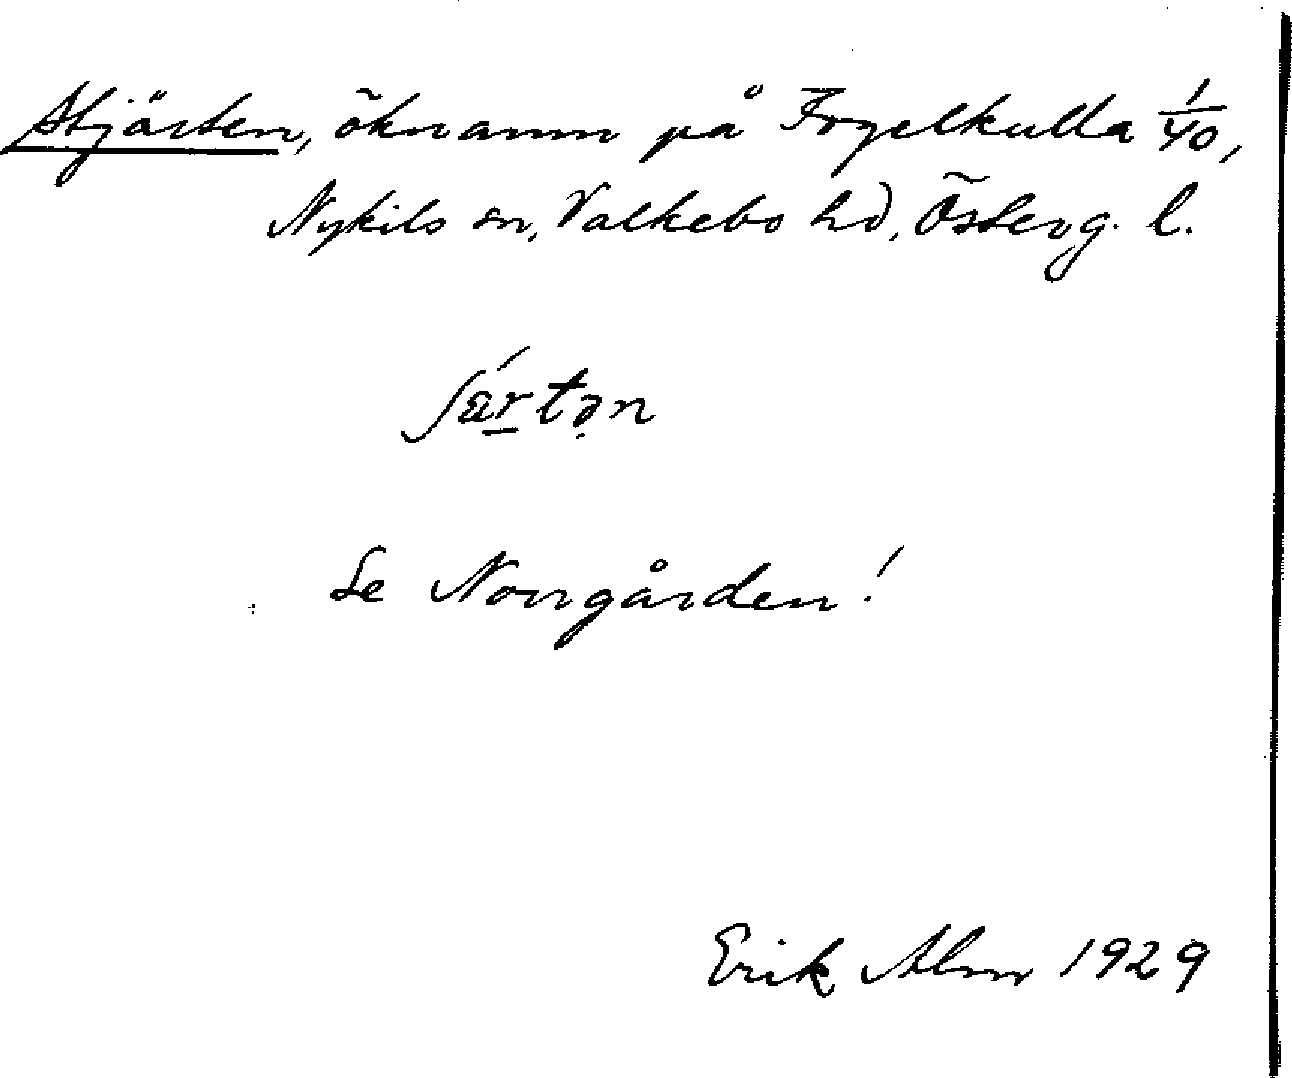 Stjärten, öknamn på Fogelkulla 1/40,
Nykils sn, Valkebo hd, Österg. l.
ʃǽrtən
Se Norrgården!
Erik Alm 1929